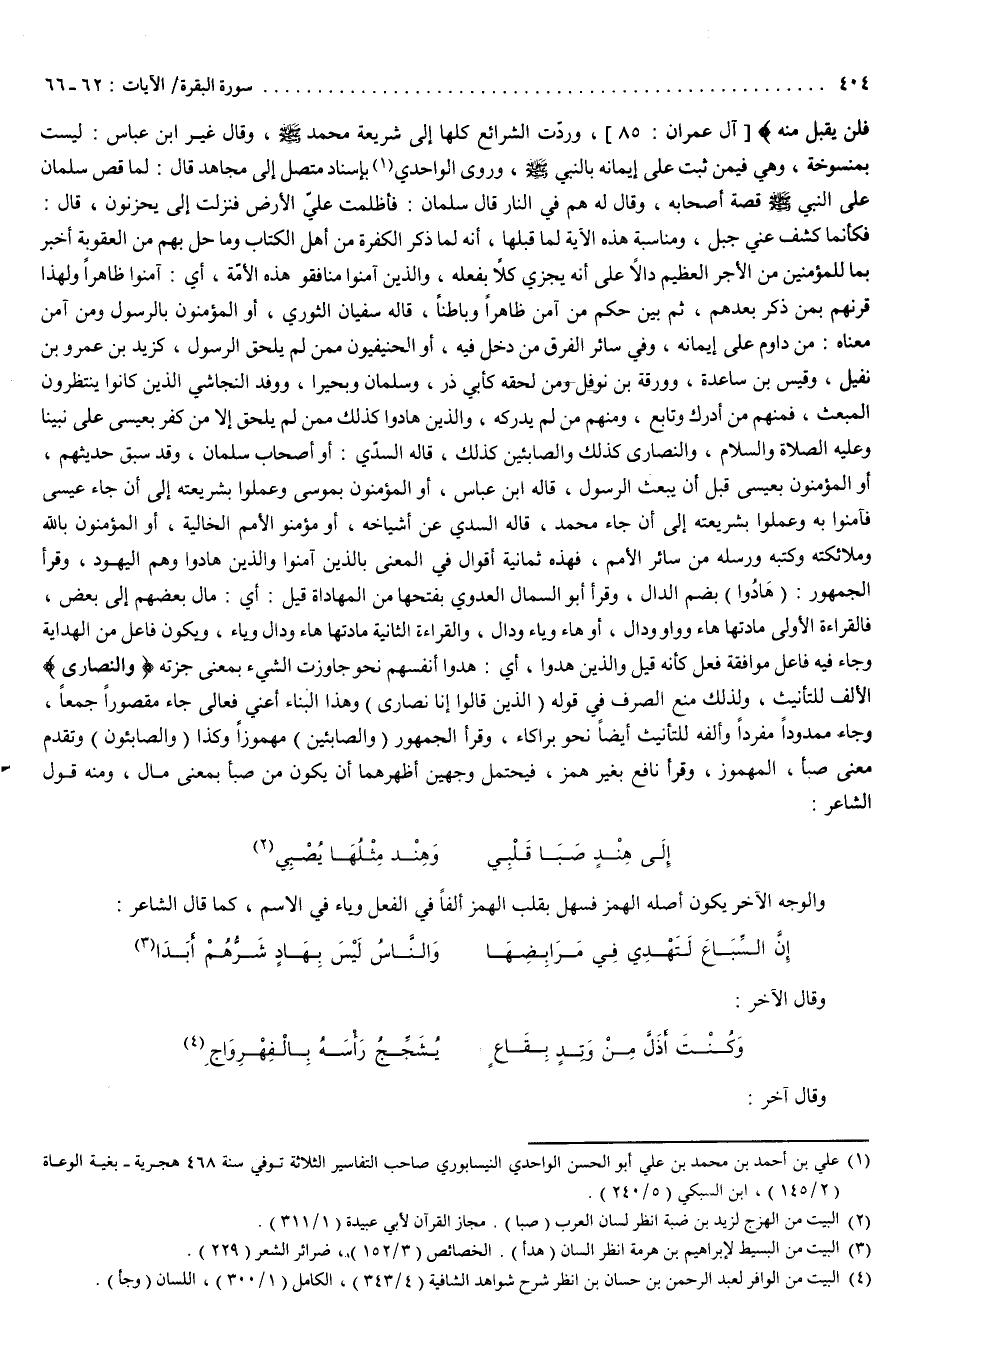 ٤٠٤ ........................................................ سورة البقرة/ الآيات : ٦٢ ـ ٦٦
فلن يقبل منه ﴾ [ آل عمران : ٨٥ ] ، وردّت الشرائع كلها إلى شريعة محمد ﷺ ، وقال غير ابن عباس : ليست
بمنسوخة ، وهي فيمن ثبت على إيمانه بالنبي ﷺ ، وروى الواحدي(١) بإسناد متصل إلى مجاهد قال : لما قص سلمان
على النبي ﷺ قصة أصحابه ، وقال له هم في النار قال سلمان : فأظلمت عليّ الأرض فنزلت إلى يحزنون ، قال :
فكأنما كشف عني جبل ، ومناسبة هذه الآية لما قبلها ، أنه لما ذكر الكفرة من أهل الكتاب وما حل بهم من العقوبة أخبر
بما للمؤمنين من الأجر العظيم دالاً على أنه يجزي كلاً بفعله ، والذين آمنوا منافقو هذه الأمّة ، أي : آمنوا ظاهراً ولهذا
قرنهم بمن ذكر بعدهم ، ثم بين حكم من آمن ظاهراً وباطناً ، قاله سفيان الثوري ، أو المؤمنون بالرسول ومن آمن
معناه : من داوم على إيمانه ، وفي سائر الفرق من دخل فيه ، أو الحنيفيون ممن لم يلحق الرسول ، كزيد بن عمرو بن
نفيل ، وقيس بن ساعدة ، وورقة بن نوفل ومن لحقه كأبي ذر ، وسلمان وبحيرا ، ووفد النجاشي الذين كانوا ينتظرون
المبعث ، فمنهم من أدرك وتابع ، ومنهم من لم يدركه ، والذين هادوا كذلك ممن لم يلحق إلا من كفر بعيسى على نبينا
وعليه الصلاة والسلام ، والنصارى كذلك والصابئين كذلك ، قاله السدّي : أو أصحاب سلمان ، وقد سبق حديثهم ،
أو المؤمنون بعيسى قبل أن يبعث الرسول ، قاله ابن عباس ، أو المؤمنون بموسى وعملوا بشريعته إلى أن جاء عيسى
فآمنوا به وعملوا بشريعته إلى أن جاء محمد ، قاله السدي عن أشياخه ، أو مؤمنو الأمم الخالية ، أو المؤمنون بالله
وملائكته وكتبه ورسله من سائر الأمم ، فهذه ثمانية أقوال في المعنى بالذين آمنوا والذين هادوا وهم اليهود ، وقرأ
الجمهور : ( هَادُوا ) بضم الدال ، وقرأ أبو السمال العدوي بفتحها من المهاداة قيل : أي : مال بعضهم إلى بعض ،
فالقراءة الأولى مادتها هاء وواو ودال ، أو هاء وياء ودال ، والقراءة الثانية مادتها هاء ودال وياء ، ويكون فاعل من الهداية
وجاء فيه فاعل موافقة فعل كأنه قيل والذين هدوا ، أي : هدوا أنفسهم نحو جاوزت الشيء بمعنى جزته ﴿ والنصارى ﴾
الألف للتأنيث ، ولذلك منع الصرف في قوله ( الذين قالوا إنا نصارى ) وهذا البناء أعني فعالى جاء مقصوراً جمعاً ،
وجاء ممدوداً مفرداً وألفه للتأنيث أيضاً نحو براكاء ، وقرأ الجمهور ( والصابئين ) مهموزاً وكذا ( والصابئون ) وتقدم
معنى صبأ ، المهموز ، وقرأ نافع بغير همز ، فيحتمل وجهين أظهرهما أن يكون من صبأ بمعنى مال ، ومنه قول
الشاعر :
إِلَى هِنْدٍ صَبَا قَلْبِي وَهِنْد مِثْلُهَا يُصْبِي(٢)
والوجه الآخر يكون أصله الهمز فسهل بقلب الهمز ألفاً في الفعل وياء في الاسم ، كما قال الشاعر :
إِنَّ السِّبَاعَ لَتَهْدِي فِي مَرَابِضِهَا وَالنَّاسُ لَيْسَ بِهَادٍ شَرُّهُمْ أَبَدَا(٣)
وقال الآخر :
وَكُنْتَ أَذَلَّ مِنْ وَتِدٍ بِقَاعٍ يُشَجِّجُ رَأْسَهُ بِالْفِهْرِوَاجِ(٤)
وقال آخر :
(١) علي بن أحمد بن محمد بن علي أبو الحسن الواحدي النيسابوري صاحب التفاسير الثلاثة توفي سنة ٤٦٨ هجرية ـ بغية الوعاة
( ١٤٥/٢ ) ، ابن السبكي ( ٢٤٠/٥ ) .
(٢) البيت من الهزج لزيد بن ضبة انظر لسان العرب ( صبا ) . مجاز القرآن لأبي عبيدة ( ٣١١/١ ) .
(٣) البيت من البسيط لإبراهيم بن هرمة انظر السان ( هدأ ) . الخصائص ( ١٥٢/٣ ) ، ضرائر الشعر ( ٢٢٩ ) .
(٤) البيت من الوافر لعبد الرحمن بن حسان بن انظر شرح شواهد الشافية ( ٣٤٣/٤ ) ، الكامل ( ٣٠٠/١ ) ، اللسان ( وجأ ) .